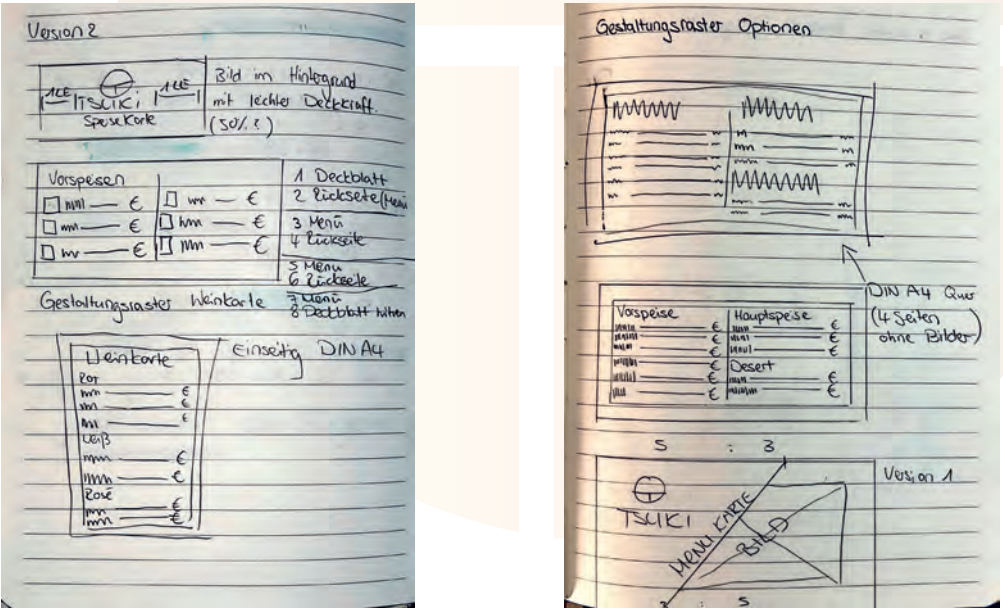 Version 2
1LE TSUKI 1LE
Speisekarte
Bild im Hintergrund
mit leichter Deckkraft.
(50%?)
Vorspeisen
€ €
€ €
€ €
1 Deckblatt
2 Rückseite (Menü
3 Menü
4 Rückseite
5 Menü
6 Rückseite
7 Menü
8 Deckblatt hinten
Gestaltungsraster Weinkarte
Einseitig DIN A4
Weinkarte
Rot
€
€
€
Weiß
€
€
Rosé
€
€
Gestaltungsraster Optionen
DIN A4 Quer
(4 Seiten
ohne Bilder)
Vorspeise
€
€
€
€
€
€
Hauptspeise
€
€
€
Desert
€
€
5 : 3
Version 1
TSUKI
MENÜ KARTE
BILD
3 : 5